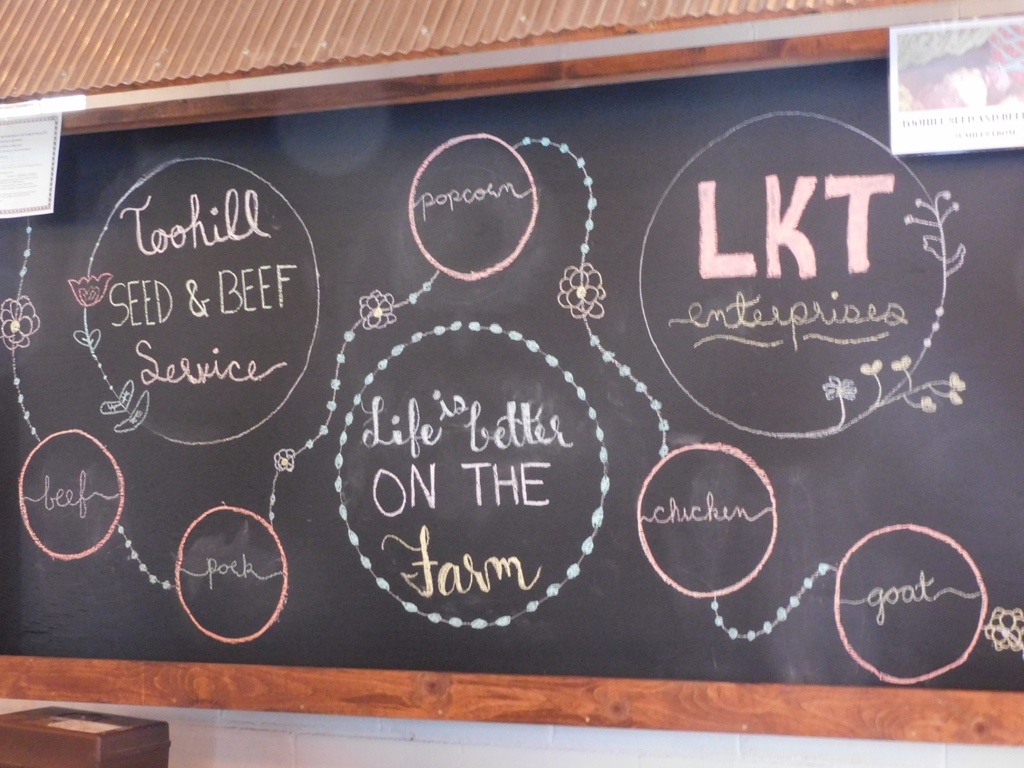 Toohill
SEED & BEEF
Service
popcorn
LKT
enterprises
Life is better
ON THE
Farm
beef
pork
chicken
goat
TOOHILL SEED AND BEEF